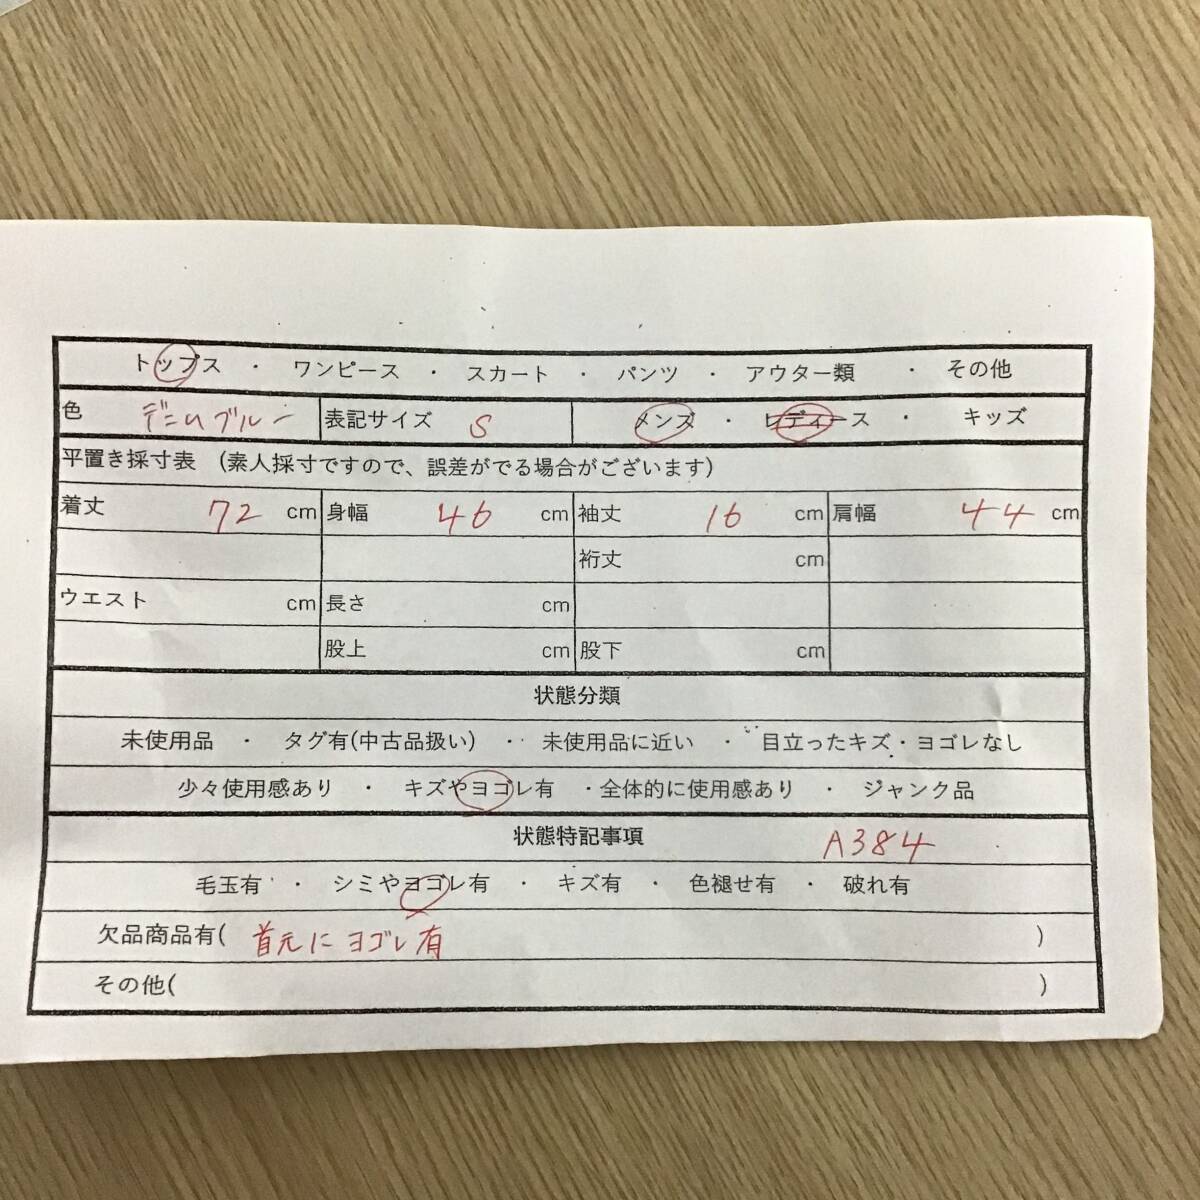 トップス ・ ワンピース ・ スカート ・ パンツ ・ アウター類 ・ その他
色 デニムブルー 表記サイズ S メンズ ・ レディース ・ キッズ
平置き採寸表 (素人採寸ですので、誤差がでる場合がございます)
着丈 72 cm 身幅 46 cm 袖丈 16 cm 肩幅 44 cm
裄丈 cm
ウエスト cm 長さ cm
股上 cm 股下 cm
状態分類
未使用品 ・ タグ有(中古品扱い) ・ 未使用品に近い ・ 目立ったキズ・ヨゴレなし
少々使用感あり ・ キズやヨゴレ有 ・全体的に使用感あり ・ ジャンク品
状態特記事項 A384
毛玉有 ・ シミやヨゴレ有 ・ キズ有 ・ 色褪せ有 ・ 破れ有
欠品商品有( 首元にヨゴレ有 )
その他( )